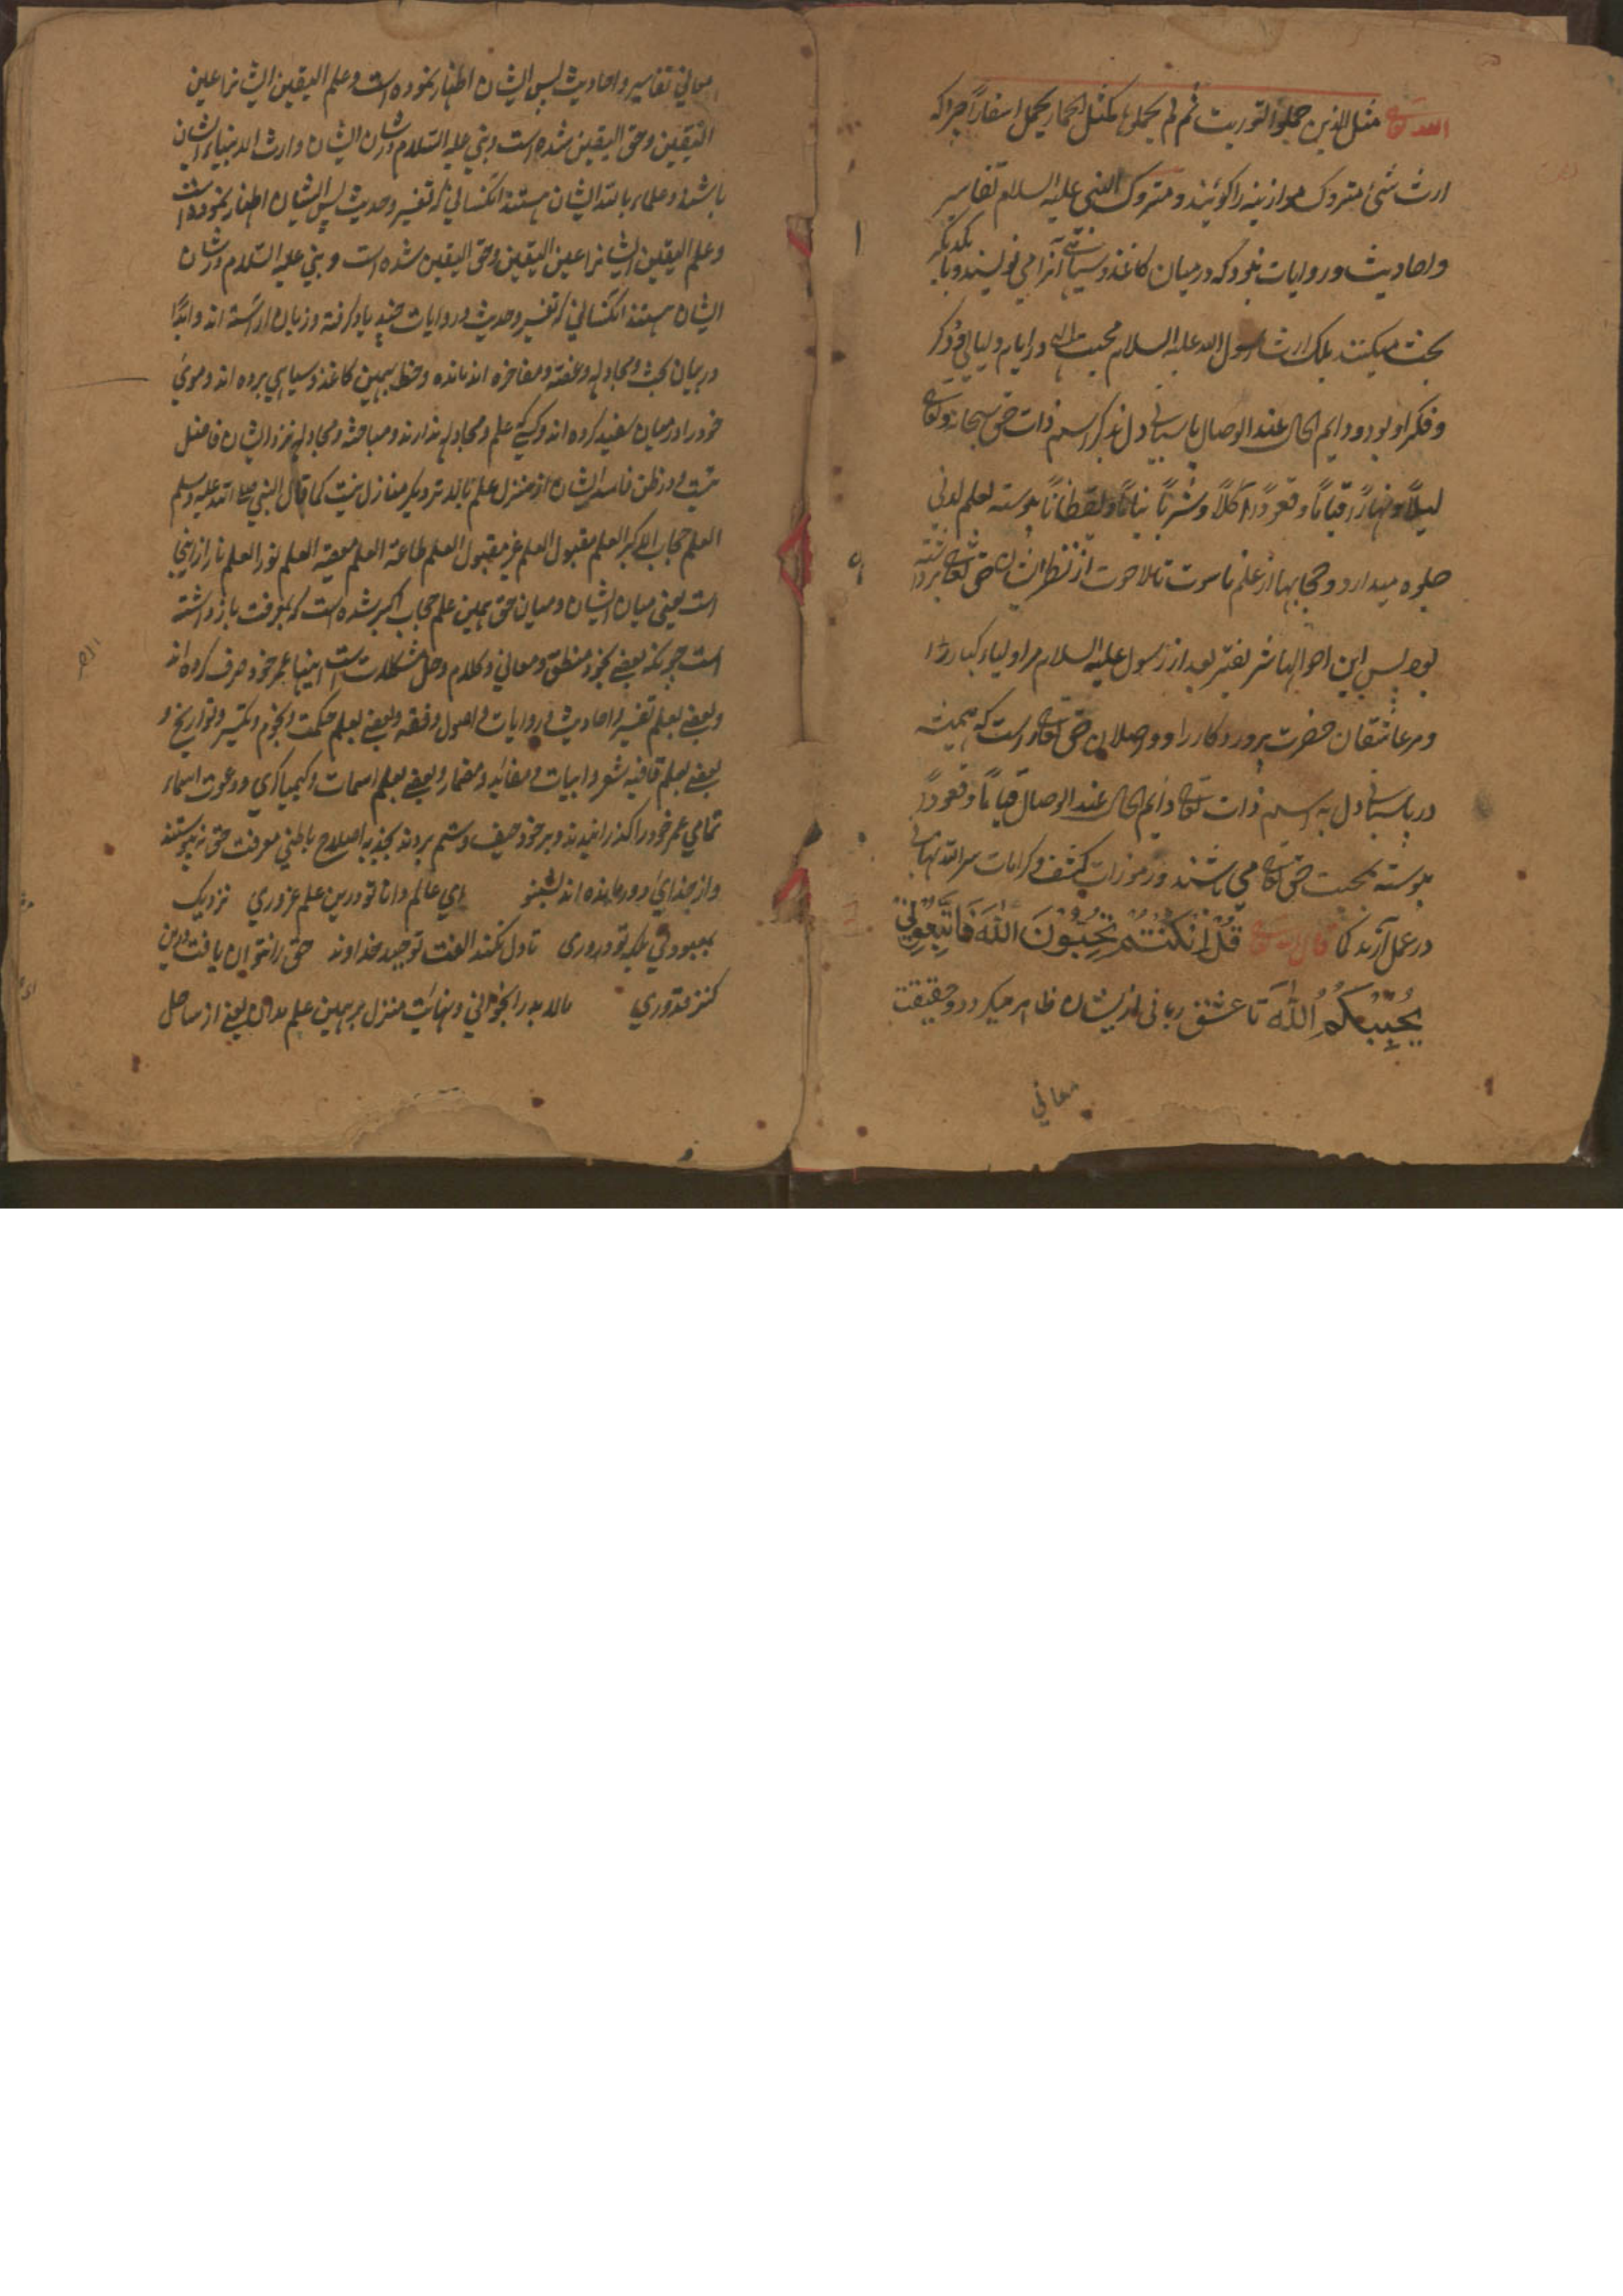 الله تعالی مثل الذین حملوا التوریت ثم لم یحملوها کمثل الحمار یحمل اسفاراً چراکه
ارث شئ متروک موازینه را گویند و متروک النبی علیه السلام تفاسیر
و احادیث و روایات نبود که درمیان کاغذ و سیاهی آنرا می نویسند و با یکدیگر
بحث میکنند بلک ارث رسول الله علیه السلام محبت الهی در ایام و لیالی و ذکر
و فکر او بود و دایم الحال عند الوصال پاسبانی دل بذکر اسم ذات حق سبحانه و تعالی
لیلاً و نهاراً قیاماً و قعوداً اکلاً و شرباً نیاماً و یقظاناً پیوسته بعلم لدنی
جلوه میدارد و حجابها از علم ناسوت تا لاحوت از نظر ایشان حق تعالی برداشته
بود پس این احوالها بغیر بعد از رسول علیه السلام مر اولیاء کبار را
و مر عاشقان حضرت پروردکار را و واصلان حق تعالی را است که همیشه
در پاسبانی دل به اسم ذات تعالی دائم الحال عند الوصال قیاماً و قعوداً
پیوسته بمحبت حق تعالی می باشند و رموزات کشف و کرامات سر الله نهانی
در عمل آرند کما قال الله تعالی قُلْ اِنْ کُنْتُمْ تُحِبُّوْنَ اللّٰهَ فَاتَّبِعُوْنِیْ
یُحْبِبْکُمُ اللّٰهُ تا عشق ربانی از ایشان ظاهر میکردد و حقیقت
معانی
معانی تفاسیر و احادیث پس ایشان اظهار نموده است و علم الیقین ایشانرا عین
الیقین و حق الیقین شده است و نبی علیه السلام در شان ایشان وارث الانبیاء ایشان
باشند و علماء بالله ایشان هستند آنکسانی که تفسیر و حدیث پس ایشان اظهار نموده است
و علم الیقین ایشانرا عین الیقین و حق الیقین شده است و نبی علیه السلام در شان
ایشان هستند آنکسانی که تفسیر و حدیث و روایات چند یاد کرفته و زبان آراسته اند و ابداً
درمیان بحث و مجادله و غصه و مفاخره اند مانده و حظ بهمین کاغذ و سیاهی برده اند و موئی
خود را درمیان سفید کرده اند و کسی که علم و مجادله ندارند و مباحثه و مجادله نزد ایشان فاضل
نیست و در ظن فاسد ایشان از منزل علم بالاتر دیگر منازل نیست کما قال النبی صلی الله علیه وسلم
العلم حجاب الاکبر العلم مقبول العلم غیر مقبول العلم طاعة العلم معصیة العلم نور العلم نار ازاینجا
است یعنی میان ایشان و میان حق همین علم حجاب اکبر شده است که بمعرفت باز داشته
است چونکه بعضی بنحو و منطق و معانی و کلام و حل مشکلات است اینها عمر خود صرف کرده اند
و بعضی بعلم تفسیر و احادیث و روایات و اصول و فقه و بعضی بعلم حکمت و نجوم و تکسیر و تواریخ و
بعضی بعلم قافیه شعر و ابیات و بعضی بعلم اسمات و کیمیاکری و دعوت اسماء
تمامی عمر خود را کذرانیدند و بر خود حیف و ستم بردند بجذبه اصلاح باطنی معرفت حق نه پیوستند
و از خدای دور مانده اند بشنو    ای عالم دانا تو درین علم غروری    نزدیک
بمعبود نی بلکه تو دوری    تا دل نکند الفت توحید خداوند    حق را نتوان یافت درین
کنز قدوری    مالابد را بخوانی و نهایت منزل بر همین علم مدان یعنی از ساحل